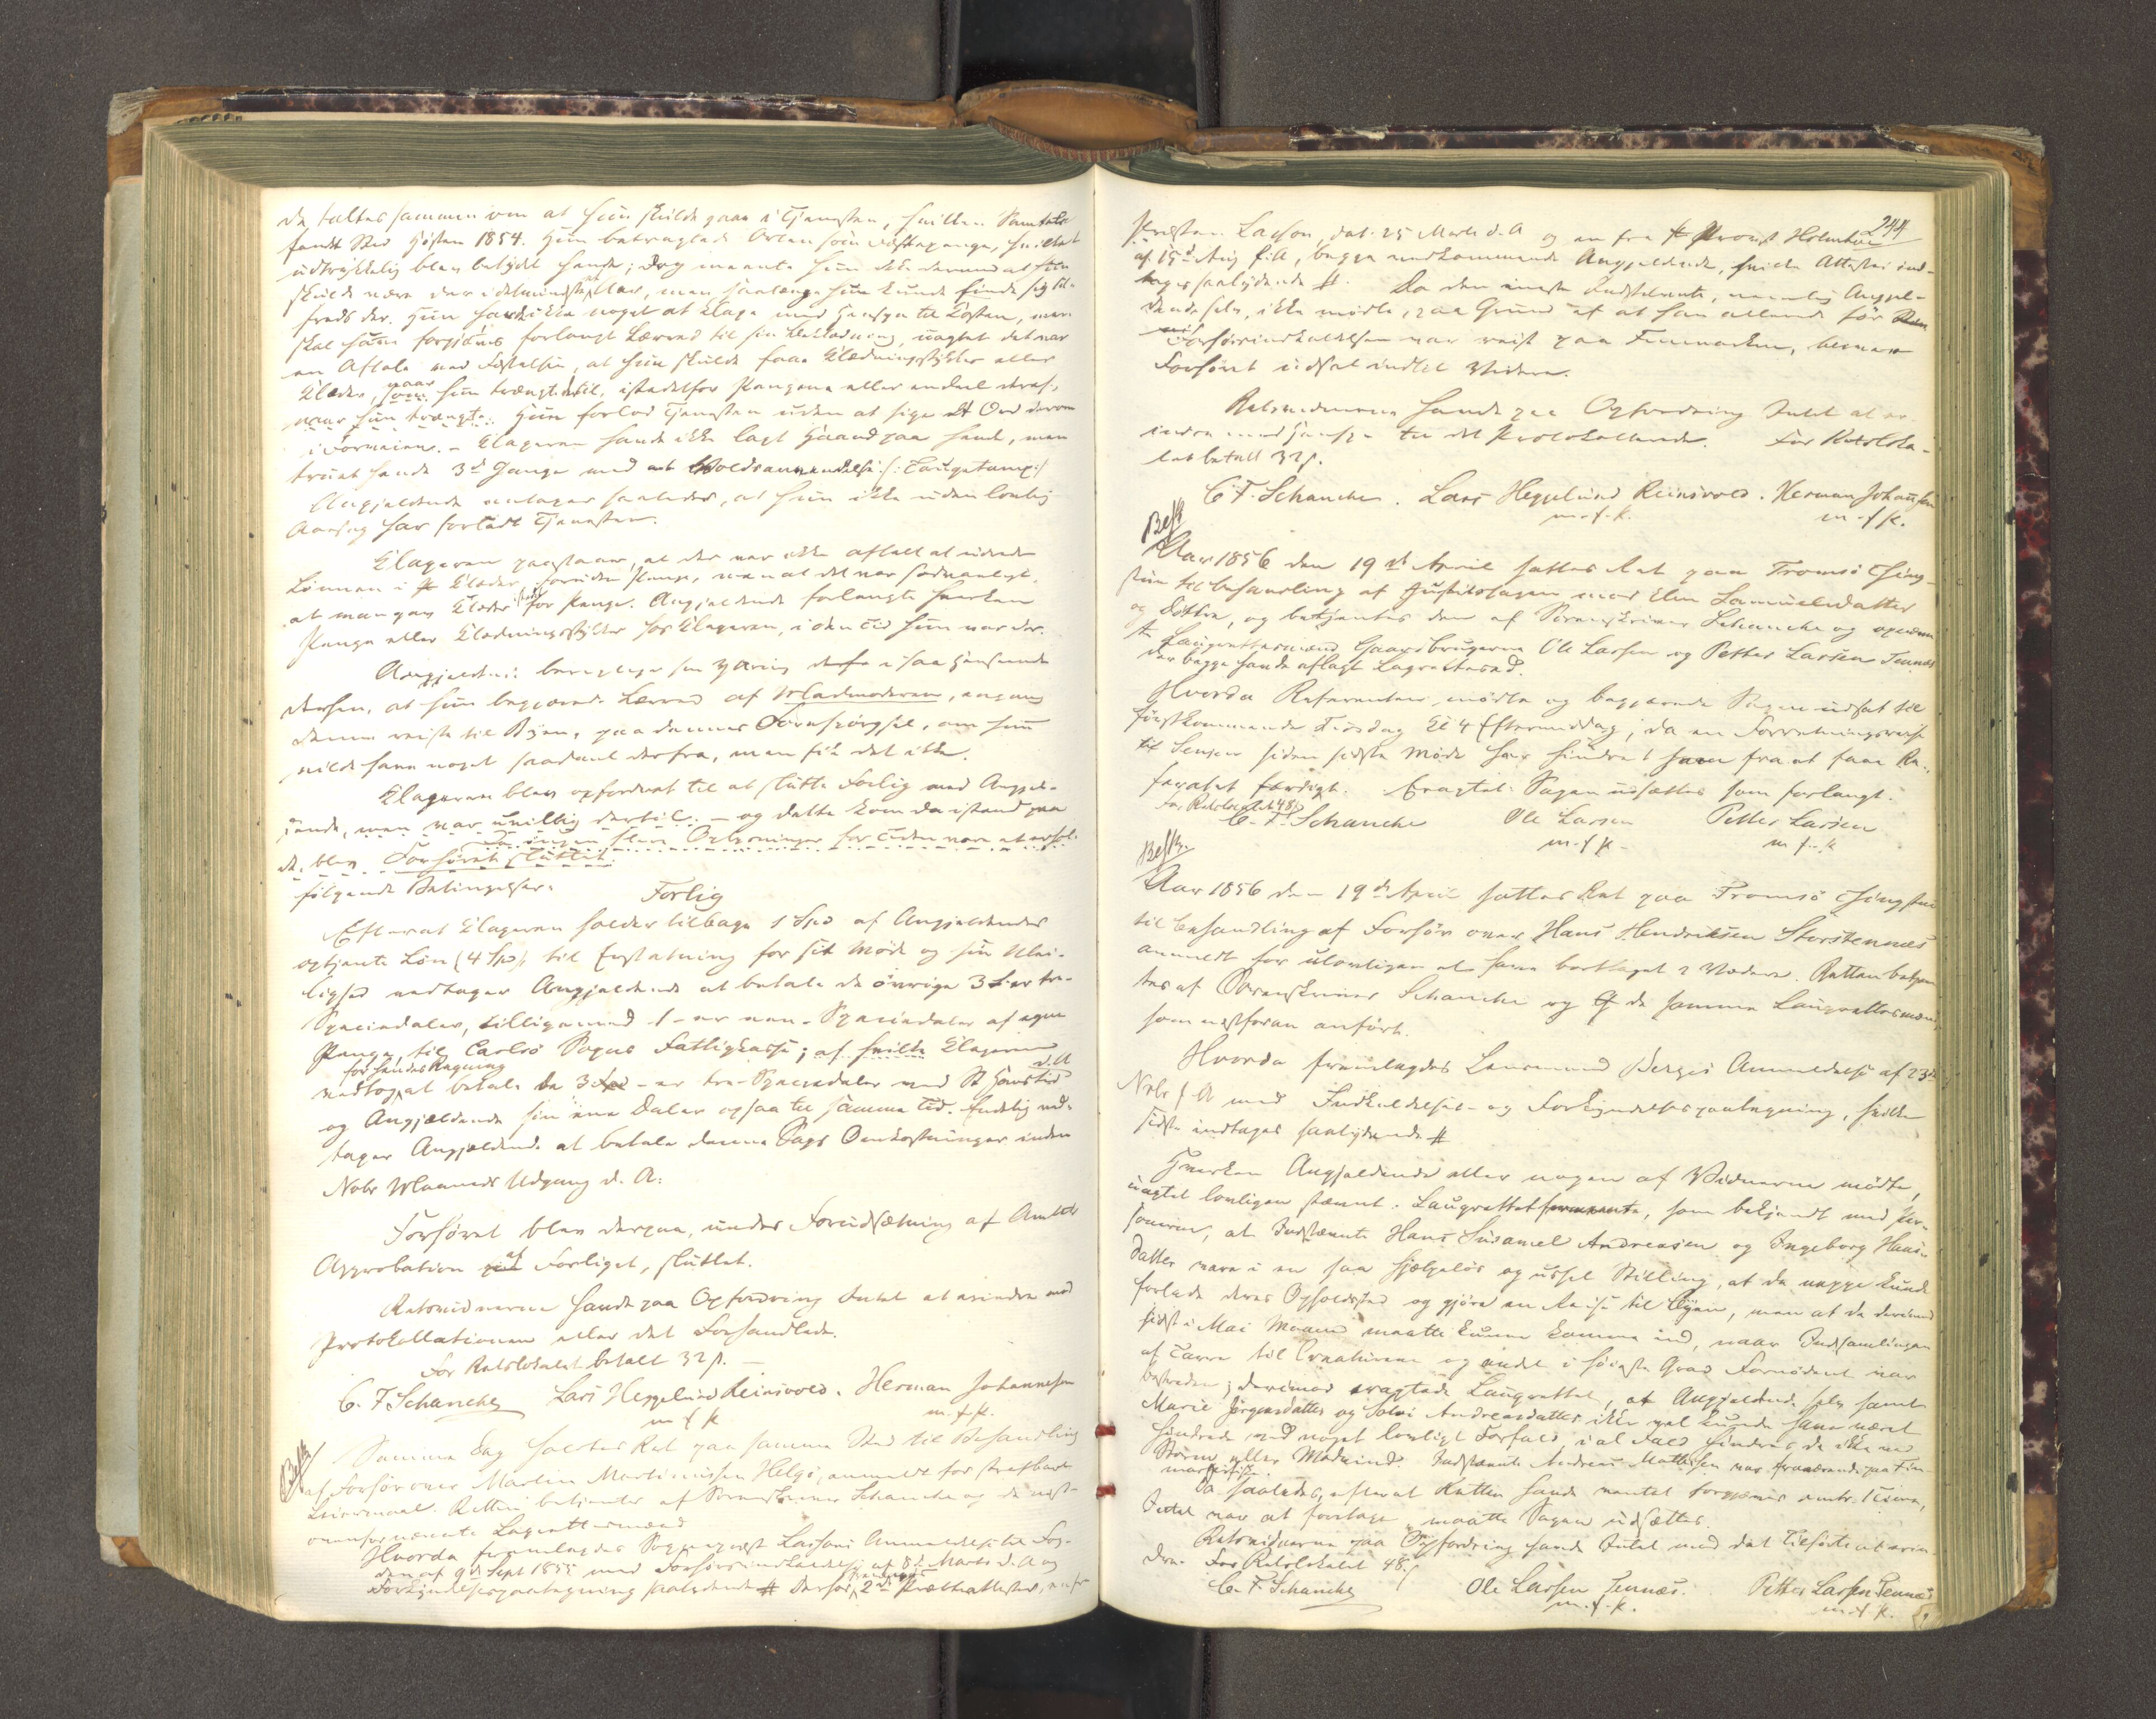 da taltes sammen om at hun skulde gaae i Tjenesten, hvilken Samtale
fandt Sted Høsten 1854. Hun betragtede Orlen som Fæstepenge, hvilket
udtrykkelig blev betydet hende; dog meente hun ikke derved at hun
skulde være der idetmindste Aar, men saalænge hun kunde finde sig til-
freds der. Hun havde ikke noget at klage med Hensyn til Kosten, men
skal have forgjæves forlangt Lærred til sin Beklædning, uagtet det var
en Aftale ved Fæstelsen, at hun skulde faae Klædningsstykker eller
Klæder, naar hun trængte dertil, istedetfor Pengene eller endeel deraf,
naar hun trængte. Hun forlod Tjenesten uden at sige et Ord derom
i Forveien. – Klageren havde ikke lagt Haand paa hende, men
truet hende 3de Gange med Voldsanvendelse /: Taugetamp :/
Angjeldende antager saaledes, at hun ikke uden lovlig
Aarsag har forladt Tjenesten.
Klageren paastaaer, at der var ikke aftalt at udrede
Lønnen i Klæder, foruden Penge, men at det var sædvanligt,
at man gav Klæder istedet for Penge. Angjeldende forlangte hverken
Penge eller Klædningsstykker hos Klageren, i den Tid hun var der.
Angjeldende berigtiger sin Forklaring i saa Henseende
derhen, at hun begjærede Lærred af Madmoderen, engang
denne reiste til Byen, paa dennes Forespørgsel, om hun
vilde have noget saadant derfra, men fik det ikke.
Klageren blev opfordret til at slutte Forlig med Angjel-
dende, men var uvillig dertil. – og dette kom da istand paa
Da ingen flere Oplysninger for Tiden vare at erhol-
de, blev Forhøret sluttet.
følgende Betingelser:
Forlig
Efterat Klageren holder tilbage 1 Spd af Angjeldendes
optjente Løn (4 Spd), til Erstatning for sit Møde og sin Ulei-
lighed vedtager Angjeldende at betale de øvrige 3 – er tre –
Speciedaler, tilligemed 1 – er een – Speciedaler af egne
Penge, til Carlsø Sogns Fattigkasse; af hvilke Klageren
for hendes Regning
vedtog, at betale de 3 – er tre – Speciedaler ved St. Hans Tid d. A.
og Angjældende sin ene Daler ogsaa til samme Tid. Endelig ved-
tager Angjældende at betale denne Sags Omkostninger inden
Novbr Maaneds Udgang d. A.
Forhøret blev derpaa, under Forudsætning af Amtets
Approbation paa Forliget, sluttet.
Retsvidnerne havde paa Opfordring Intet at erindre ved
Protokollationen eller det Forhandlede.
For Retslokalet betalt 32 s. –
C. F. Schanche Lars Heggelund Reinsvold. Herman Johannesen
m. f. p. m. f. p.
Besk
Samme Dag holdtes Ret paa samme Sted til Behandling
af Forhør over Martin Martinussen Helgø, anmeldt for strafbart
Leiermaal. Retten betjentes af Sorenskriver Schanche og de næst-
ovenfornævnte Lagrettesmænd
Hvorda fremlagdes Sognepræst Lassons Anmeldelse til Fog-
den af 9de Sept 1855 med Forhørsindkaldelse af 8de Marts d. A. og
Forkyndelsespaategning saalydende # Derhos fremlagdes 2de Præsteattester, en fra
244
Præsten Lasson dat. 25 Marts d. A og en fra Provst Holmboe
af 15de Aug f. A, begge vedkommende Angjeldende, hvilke Attester ind-
tages saalydende #. Da den eneste Indstevnte, nemlig Angjel-
dende selv, ikke mødte, paa Grund af at han allerede før
Forhørsindkaldelsen var reist paa Finmarken, blev
Forhøret udsat indtil Videre.
Retsvidnerne havde paa Opfordring Intet at er-
indre med Hensyn til det Protokollerede. For Retsloka-
let betalt 32 s.
C. F. Schanche. Lars Heggelund Reinsvold. Herman Johannesen
m. f. p. m. f. p.
Besk
Aar 1856 den 19de April sattes Ret paa Tromsø Thing-
stue til Behandling af Justitssagen mod Elen Samuelsdatter
og Døttre, og betjentes den af Sorenskriver Schanche og opnævn-
te Laugrettesmænd Gaardbrugerne Ole Larsen og Petter Larsen Tennæs
der begge havde aflagt Lagrettesed.
Hvorda Referenten mødte og begjærede Sagen udsat til
førstkommende Tirsdag Kl 4 Eftermiddag, da en Forretningsreise
til Senjen siden sidste Møde har hindret ham fra at faae Re-
feratet færdigt. Eragtet: Sagen udsættes som forlangt.
For Retslocalet 48 s
C. F. Schanche Ole Larsen Petter Larsen
m. f. p. m. f. p.
Besk.
Aar 1856 den 19de April sattes Ret paa Tromsø Thingstue
til Behandling af Forhør over Hans Hendriksen Storstennæs
anmeldt for ulovligen at have borttaget 2 Væderer. Retten betjen-
tes af Sorenskriver Schanche og de samme Laugrettesmænd
som næstforan anført.
Hvorda fremlagdes Lensmand Bergs Anmeldelse af 23de
Novbr f. A med Indkaldelses- og Forkyndelsespaategning, hvilke
sidste indtages saalydende #
Hverken Angjeldende eller nogen af Vidnerne mødte,
uagtet lovligen stævnt. Laugrettet formeente, som bekjendt med Per-
sonerne, at Indstævnte Hans Susamel Andreasen og Ingeborg Hans-
datter vare i en saa hjælpeløs og ussel Stilling, at de neppe kunde
forlade deres Opholdssted og gjøre en Reise til Byen, men at de derimod
sidst i Mai Maaned maatte kunne komme ind, naar Indsamlingen
af Tarre til Creaturene og andet i høieste Grad Fornødent var
bestreden; derimod eragtede Laugrettet, at Angjeldende selv samt
Marie Jørgensdatter og Solvi Andreasdatter ikke vel kunde have været
hindrede ved noget lovligt Forfald, i al Fald hindres de ikke ved
Storm eller Modvind. Indstævnte Andreas Mathisen var fraværende paa Fin-
markfiske.
Da saaledes, efterat Retten havde ventet forgjæves omtr. 1 Time,
Intet var at foretage, maatte Sagen udsættes.
Retsvidnerne paa Opfordring havde Intet ved det Tilførte at erin-
dre. For Retslokalet 48 s
C. F. Schanche Ole Larsen Tennæs. Petter Larsen Tennæs
m. f. p. m. f. p.